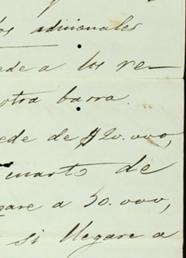 os adicionales
ede a los re-
otra barra.
ede de $20.000,
cuarto de
gare a 50.000,
si llegare a